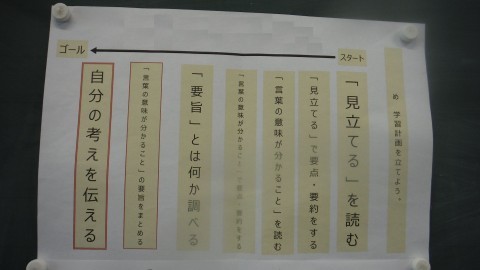 め 学習計画を立てよう。
スタート
「見立てる」を読む
「見立てる」で要点・要約をする
「言葉の意味が分かること」を読む
「言葉の意味が分かること」で要点・要約をする
「要旨」とは何か調べる
「言葉の意味が分かること」の要旨をまとめる
自分の考えを伝える
ゴール